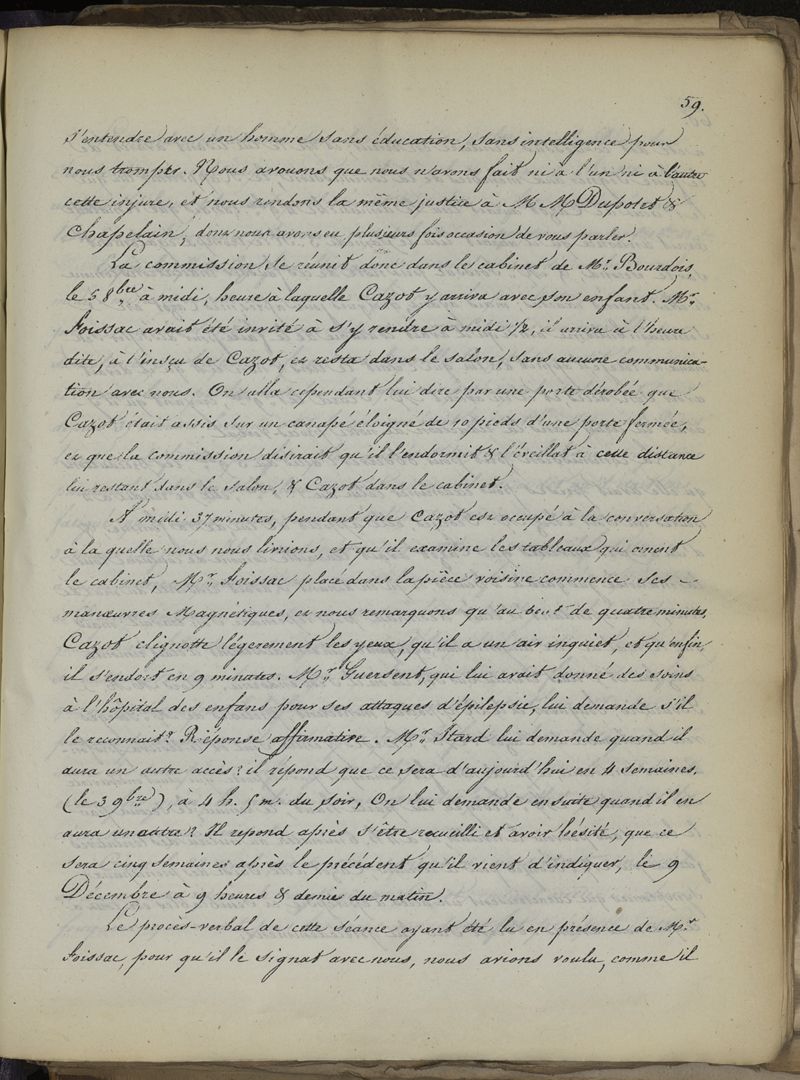 59.
s'entendre avec un homme sans éducation, sans intelligence pour
nous tromper. Nous avouons que nous n'avons fait ni à l'un ni à l'autre
cette injure, et nous rendons la même justice à MM Dupotet &
Chapelain, dont nous avons eu plusieurs fois occasion de vous parler.
La commission se réunit donc dans le cabinet de Mr. Bourdois,
le 5 8bre à midi, heure à laquelle Cazot y arriva avec son enfant. Mr.
Foissac avait été invité à s'y rendre à midi 1/2, il arriva à l'heure
dite, à l'insçu de Cazot, et resta dans le salon, sans aucune communica-
tion avec nous. On alla cependant lui dire par une porte dérobée que
Cazot était assis sur un canapé éloigné de 10 pieds d'une porte fermée,
et que la commission désirait qu'il l'endormit & l'éveillat à cette distance
lui restant dans le salon, & Cazot dans le cabinet.
A midi 37 minutes, pendant que Cazot est occupé à la conversation
à la quelle nous nous livrions, et qu'il examine les tableaux qui ornent
le cabinet, Mr. Foissac placé dans la pièce voisine commence ses -
manœuvres Magnétiques, et nous remarquons qu'au bout de quatre minutes,
Cazot clignotte légerement les yeux, qu'il a un air inquiet, et qu'enfin,
il s'endort en 9 minutes. Mr. Guersent, qui lui avait donné des soins
à l'hôpital des enfans pour ses attaques d'épilepsie, lui demande s'il
le reconnait? Réponse affirmative. Mr. Itard lui demande quand il
aura un autre accès? il répond que ce sera d'aujourd'hui en 4 semaines,
(le 3 9bre), à 4 h. 5 m. du soir, On lui demande ensuite quand il en
aura un autre? Il repond après s'être recueilli et avoir hésité, que ce
sera cinq semaines après le précédent qu'il vient d'indiquer, le 9
Décembre à 9 heures & demie du matin.
Le procès-verbal de cette séance ayant été lu en présence de Mr.
Foissac, pour qu'il le signat avec nous, nous avions voulu, comme il